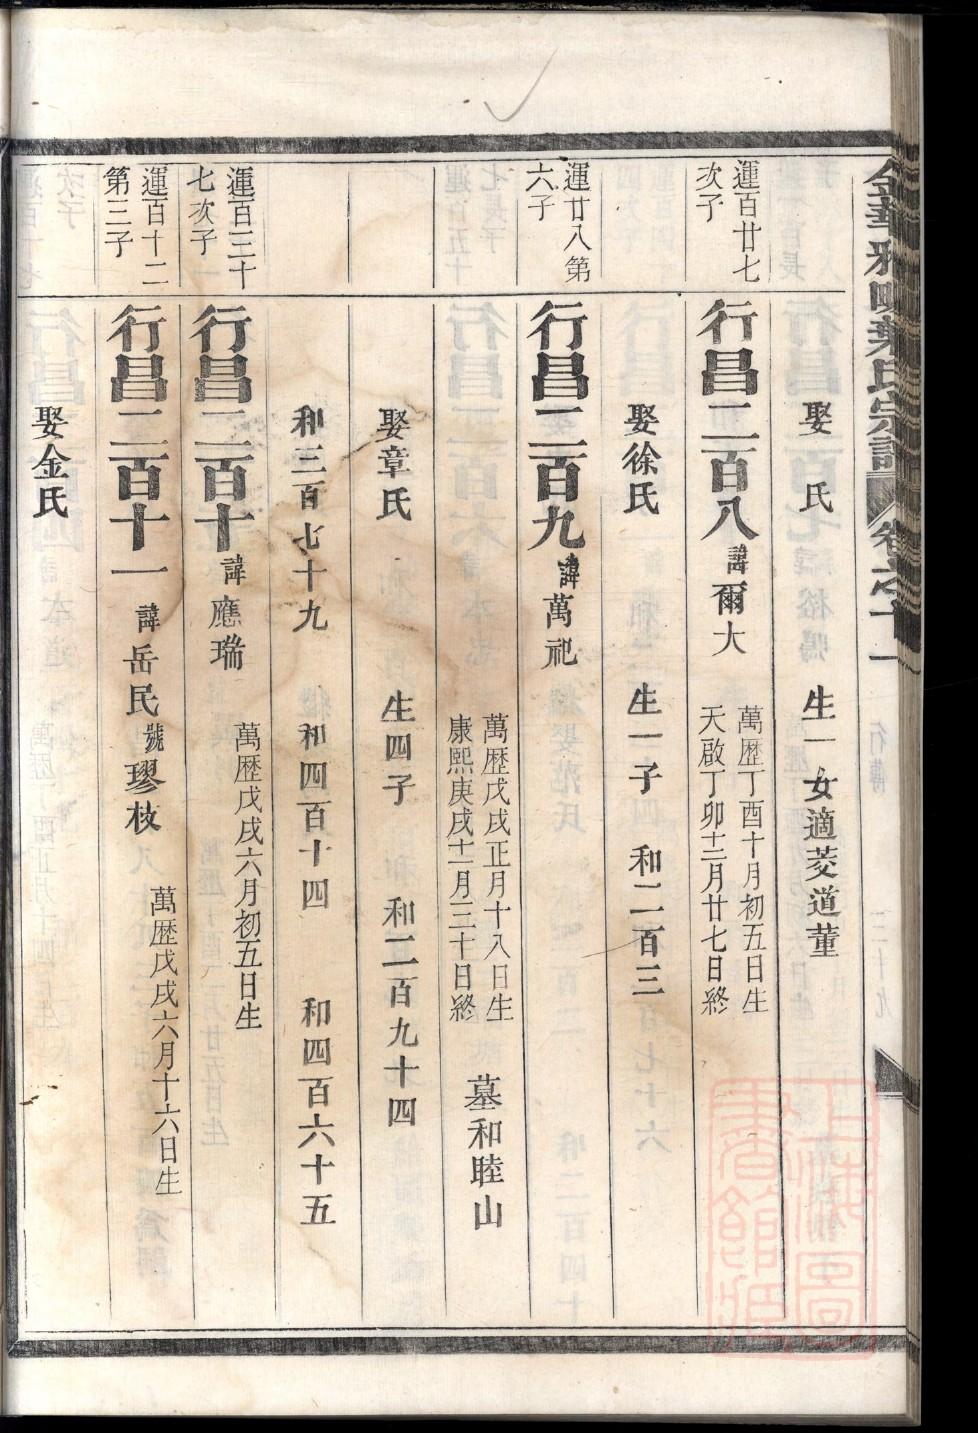 金華雅畈葉氏宗譜 卷之十一
娶 氏 生一女適菱道董
運百廿七次子
行昌二百八 諱爾大 萬歷丁酉十月初五日生
天啟丁卯十二月廿七日終
娶徐氏 生一子 和二百三
運廿八第六子
行昌二百九 諱萬祀
萬歷戊戌正月十八日生
康熙庚戌十一月三十日終 墓和睦山
娶章氏 生四子 和二百九十四
和三百七十九 和四百十四 和四百六十五
運百三十七次子
行昌二百十 諱應瑞 萬歷戊戌六月初五日生
運百十二第三子
行昌二百十一 諱岳民 號璆枝 萬歷戊戌六月十六日生
娶金氏
上海圖書館藏